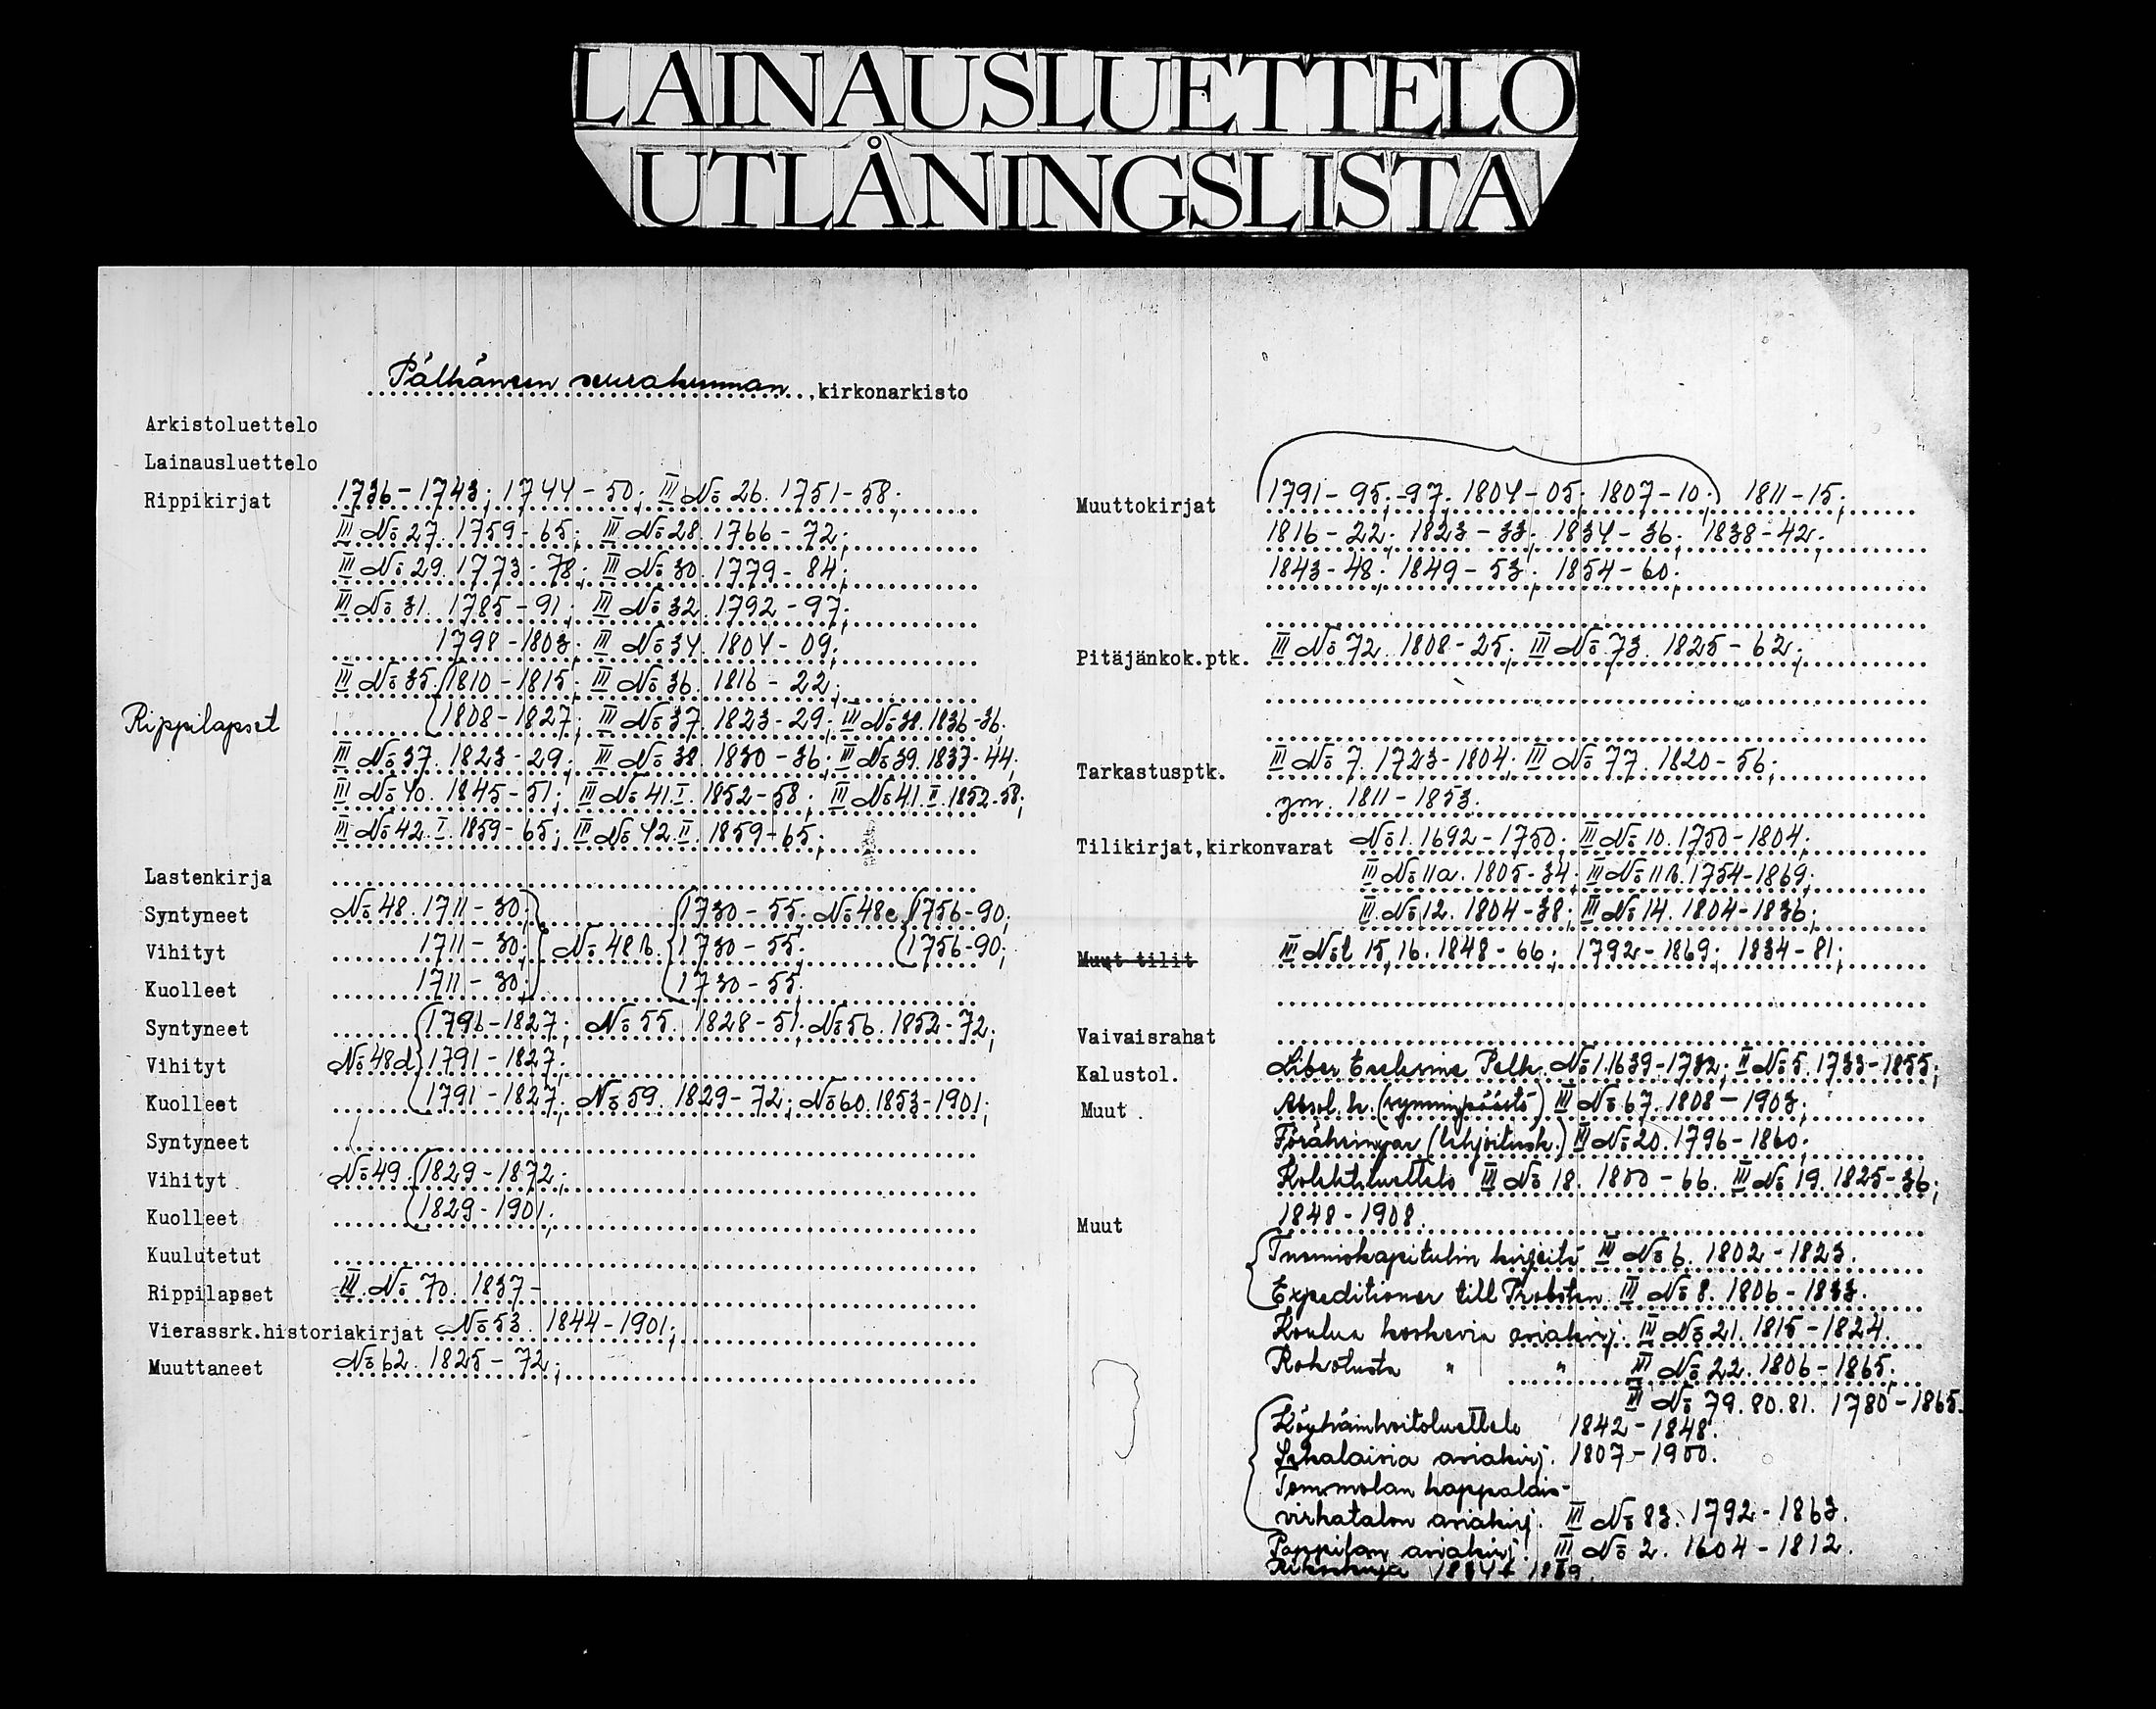 LAINAUSLUETTELO
UTLÅNINGSLISTA
Pälkäneen seurakunnan, kirkonarkisto
Arkistoluettelo
Lainausluettelo
Rippikirjat 1736-1743; 1744-50; III No 26. 1751-58;
III No 27. 1759-65; III No 28. 1766-72;
III No 29. 1773-78; III No 30. 1779-84;
III No 31. 1785-91; III No 32. 1792-97;
1798-1803; III No 34. 1804-09;
III No 35. 1810-1815; III No 36. 1816-22;
Rippilapset 1808-1827; III No 37. 1823-29; III No 38. 1836-36;
III No 37. 1823-29; III No 38. 1830-36; III No 39. 1837-44;
III No 40. 1845-51; III No 41.I. 1852-58; III No 41.II. 1852-58;
III No 42.I. 1859-65; III No 42.II. 1859-65;
Lastenkirja
Syntyneet No 48. 1711-30; 1730-55. No 48c 1756-90;
Vihityt 1711-30; No 48b. 1730-55; 1756-90;
Kuolleet 1711-30; 1730-55.
Syntyneet 1796-1827; No 55. 1828-51; No 56. 1852-72;
Vihityt No 48d 1791-1827;
Kuolleet 1791-1827; No 59. 1829-72; No 60. 1853-1901;
Syntyneet
Vihityt No 49. 1829-1872;
Kuolleet 1829-1901;
Kuulutetut
Rippilapset III No 70. 1837-
Vierassrk.historiakirjat No 53. 1844-1901;
Muuttaneet No 62. 1825-72;
Muuttokirjat 1791-95; -97. 1804-05; 1807-10; 1811-15;
1816-22; 1823-33; 1834-36; 1838-42;
1843-48; 1849-53; 1854-60;
Pitäjänkok.ptk. III No 72. 1808-25; III No 73. 1825-62;
Tarkastusptk. III No 7. 1723-1804; III No 77. 1820-56;
ym. 1811-1853.
Tilikirjat,kirkonvarat No 1. 1692-1750; III No 10. 1750-1804;
III No 11a. 1805-34; III No 11b. 1754-1869;
III No 12. 1804-38; III No 14. 1804-1836;
Muut tilit III No: t 15, 16. 1848-66; 1792-1869; 1834-81;
Vaivaisrahat
Kalustol. Liber Ecclesiae Pelk. No 1. 1639-1732; II No 5. 1733-1855;
Muut Absol.k. (synninpäästö) III No 67. 1808-1903;
Föräringar (lahjoitusk.) III No 20. 1796-1860;
Kolehtiluettelo III No 18. 1800-66. III No 19. 1825-36;
Muut 1848-1908.
Tuomiokapitulin kirjeitä III No 6. 1802-1823.
Expeditioner till Probsten III No 8. 1806-1833.
Koulua koskevia asiakirj. III No 21. 1815-1824.
Rokotusta " " III No 22. 1806-1865;
III No 79. 80. 81. 1780-1865.
Köyhäinhoitoluettelo 1842-1848.
Sekalaisia asiakirj. 1807-1900.
Tommolan kappalais-
virkatalon asiakirj. III No 83. 1792-1863.
Pappilan asiakirj. III No 2. 1604-1812.